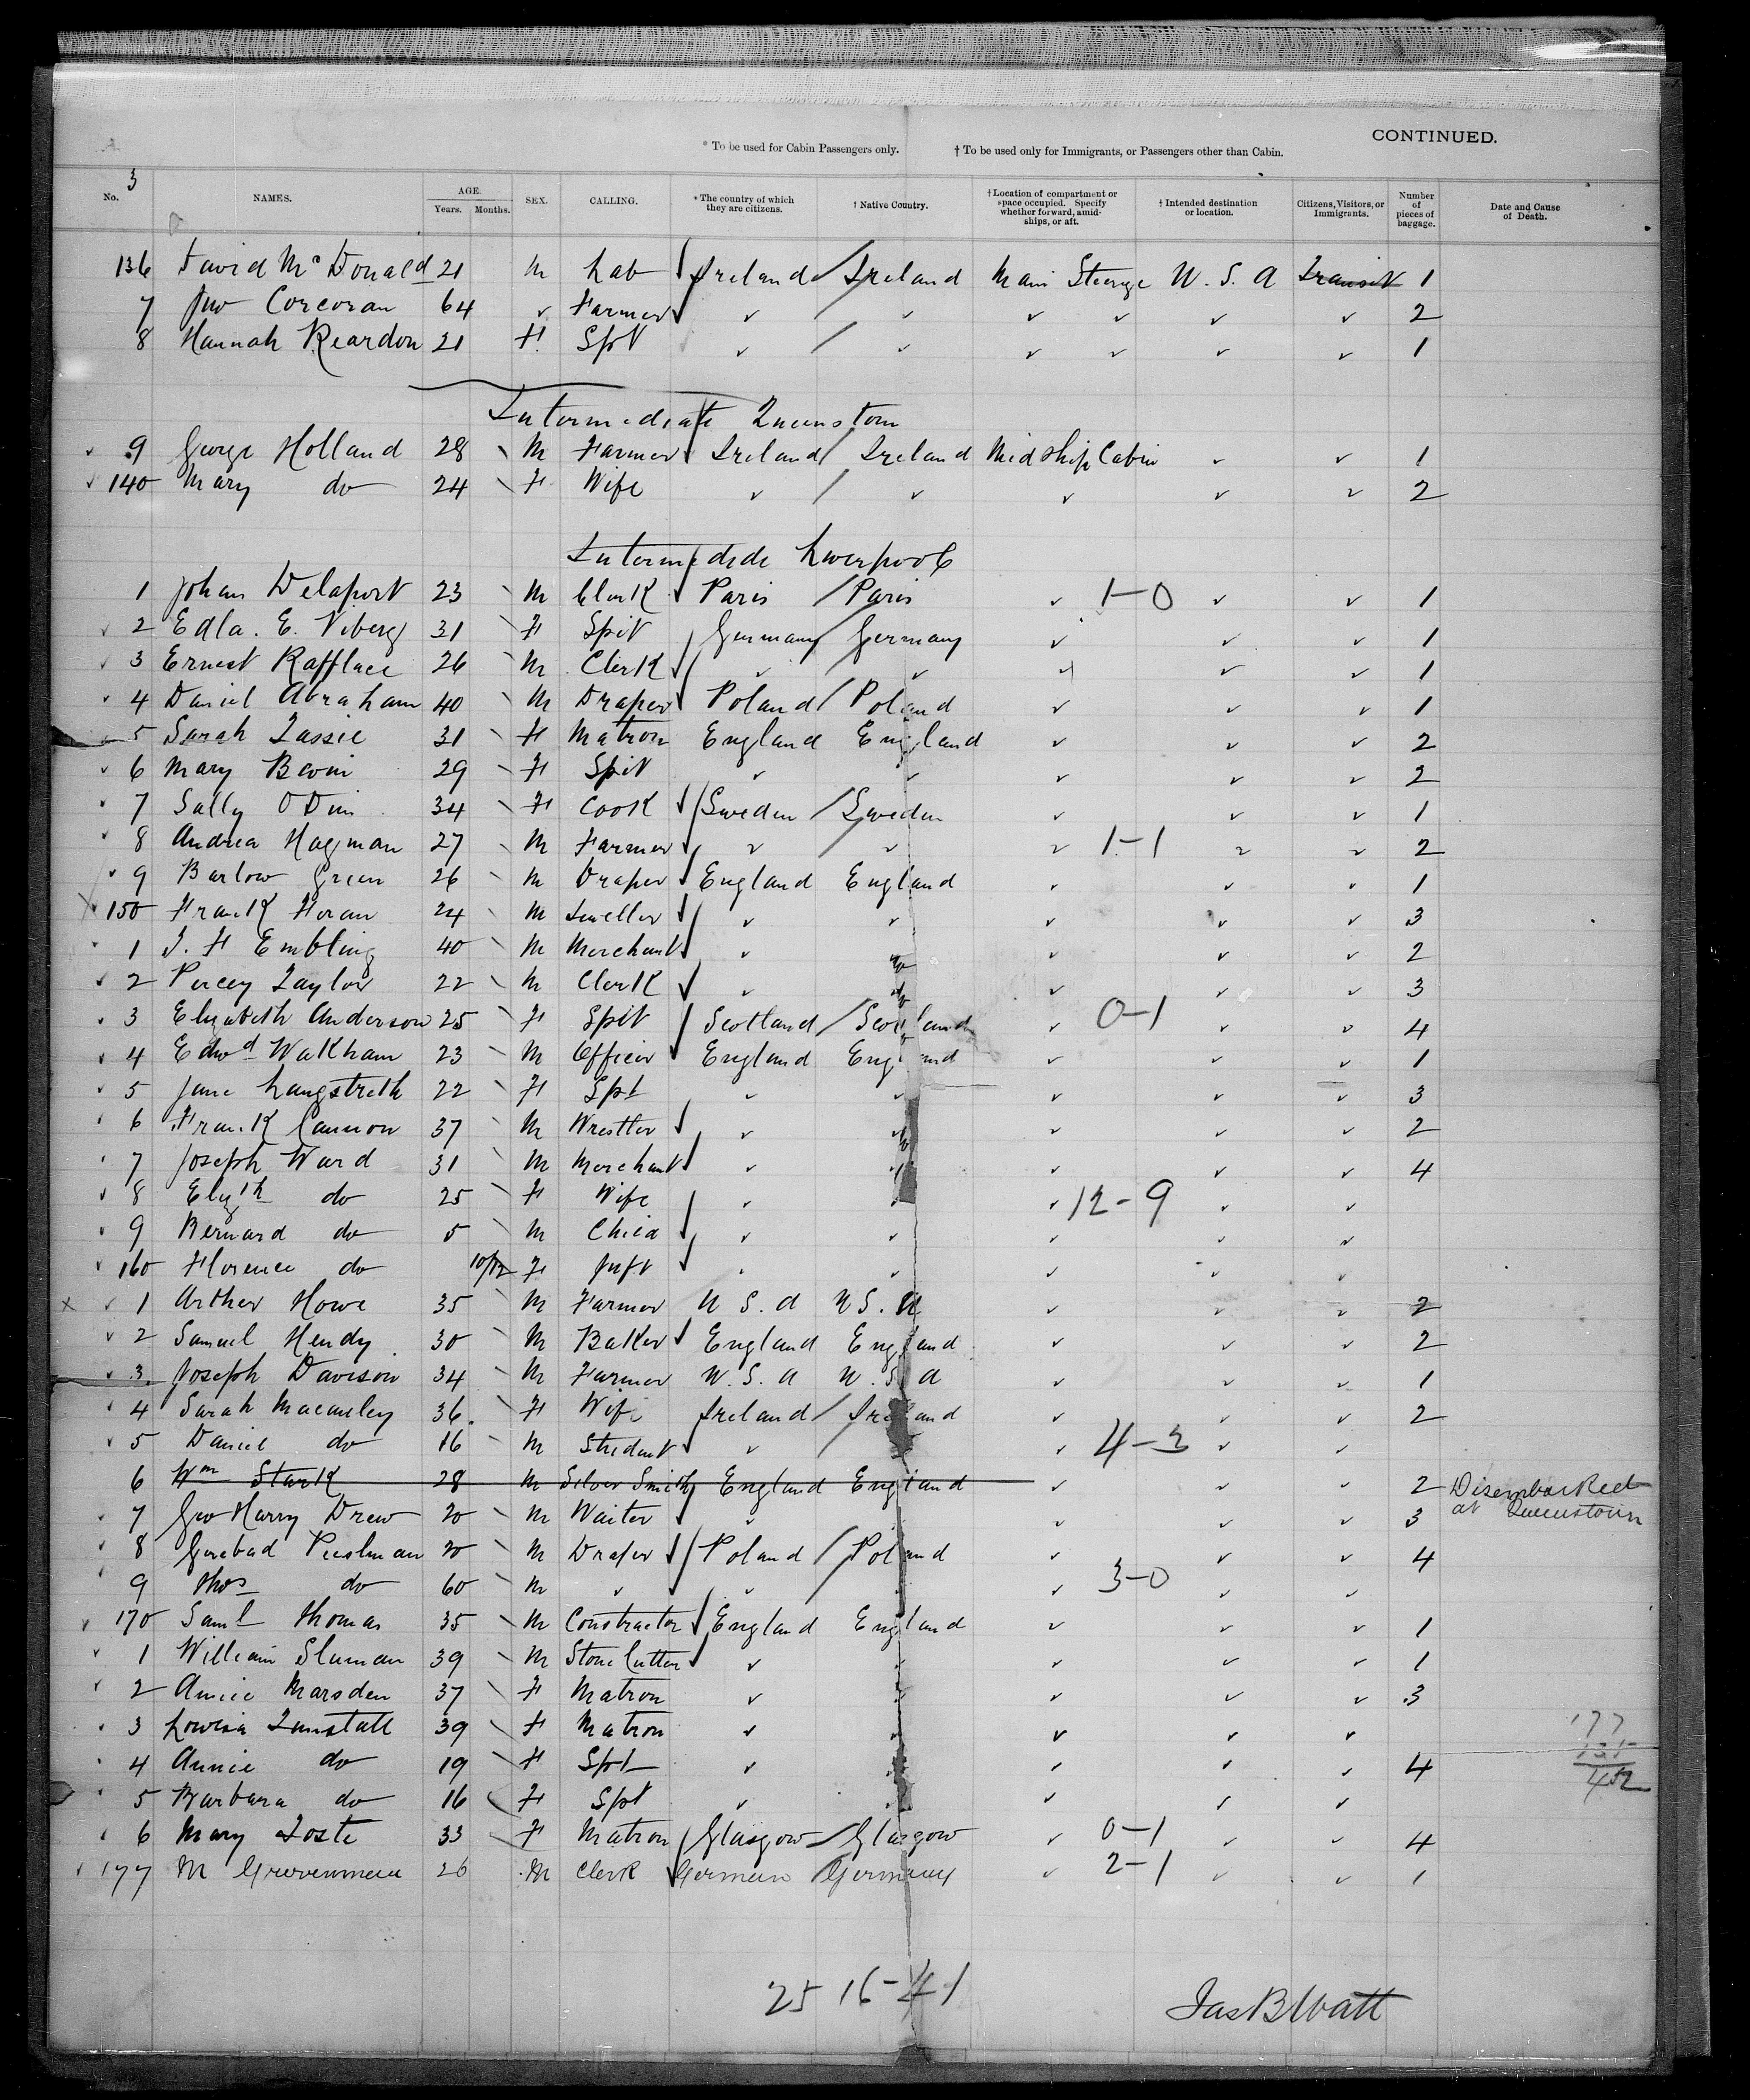 CONTINUED.
* To be used for Cabin Passengers only. † To be used only for Immigrants, or Passengers other than Cabin.
3
No. NAMES. AGE. Years. Months. SEX. CALLING. * The country of which they are citizens. † Native Country. † Location of compartment or space occupied. Specify whether forward, amidships, or aft. † Intended destination or location. Citizens, Visitors, or Immigrants. Number of pieces of baggage. Date and Cause of Death.
136 David McDonald 21 M Lab Ireland / Ireland Main Steerage U.S.A Transit 1
7 Jno Corcoran 64 ✓ Farmer ✓ / ✓ ✓ ✓ ✓ ✓ 2
8 Hannah Reardon 21 F Spt ✓ / ✓ ✓ ✓ ✓ ✓ 1
Intermediate Queenstown
9 George Holland 28 M Farmer Ireland / Ireland Midship Cabin ✓ ✓ 1
140 Mary do 24 F Wife ✓ / ✓ ✓ ✓ ✓ 2
Intermediate Liverpool
1 Johan Delaport 23 M Clerk Paris / Paris ✓ 1-0 ✓ ✓ 1
2 Edla. E. Viberg 31 F Spit Germany / Germany ✓ ✓ ✓ 1
3 Ernest Rafflace 26 M Clerk ✓ ✓ ✓ ✓ ✓ 1
4 Daniel Abraham 40 M Draper Poland / Poland ✓ ✓ ✓ 1
5 Sarah Tassie 31 F Matron England England ✓ ✓ ✓ 2
6 Mary 29 F Spit ✓ ✓ ✓ ✓ ✓ 2
7 Sally 34 F Cook Sweden / Sweden ✓ ✓ ✓ 1
8 Andrea Hagman 27 M Farmer ✓ / ✓ ✓ 1-1 ✓ ✓ 2
9 Barlow Green 26 M Draper England England ✓ ✓ ✓ 1
150 Frank Horan 24 M Jweller ✓ ✓ ✓ ✓ ✓ 3
1 J. H Embling 40 M Merchant ✓ ✓ ✓ ✓ 2
2 Percy Taylor 22 M Clerk ✓ ✓ ✓ ✓ 3
3 Elyzabeth Anderson 25 F Spit Scotland / Scotland ✓ 0-1 ✓ ✓ 4
4 Edwd Walkham 23 M Officer England England ✓ ✓ ✓ 1
5 Jane Langstreth 22 F Spt ✓ ✓ ✓ ✓ ✓ 3
6 Frank Cannon 37 M Wrestler ✓ ✓ ✓ ✓ 2
7 Joseph Ward 31 M Merchant ✓ ✓ ✓ ✓ 4
8 Elyth do 25 F Wife ✓ ✓ 12-9 ✓ ✓
9 Bernard do 5 M Child ✓ ✓ ✓ ✓ ✓
160 Florence do 10/12 F Inft ✓ ✓ ✓ ✓
1 Arther Howe 35 M Farmer U S. A U S. A ✓ ✓ ✓ 2
2 Samuel Hendy 30 M Baker England England ✓ ✓ ✓ 2
3 Joseph Davison 34 M Farmer U. S. A U. S. A ✓ ✓ ✓ 1
4 Sarah Macauley 36 F Wife Ireland / Ireland ✓ ✓ ✓ 2
5 Daniel do 16 M Student ✓ / ✓ 4-3 ✓ ✓
6 Wm Stark 28 M Silver Smith England England ✓ ✓ ✓ 2 Disembarked
7 Geo Harry Drew 20 M Waiter ✓ ✓ ✓ ✓ 3 at Queenstown
8 20 M Draper Poland / Poland ✓ ✓ ✓ 4
9 Thos do 60 M ✓ ✓ ✓ 3-0 ✓ ✓
170 Saml Thomas 35 M Constractor England England ✓ ✓ ✓ 1
1 William Sluman 39 M Stone Cutter ✓ ✓ ✓ ✓ ✓ 1
2 Annie Marsden 37 F Matron ✓ ✓ ✓ ✓ ✓ 3
3 Lowisa Tunstall 39 F Matron ✓ ✓ ✓ ✓ ✓
4 Annie do 19 F Spt ✓ ✓ ✓ ✓ 4
5 Barbara do 16 F Spt ✓ ✓ ✓ ✓
6 Mary Toste 33 F Matron Glasgow / Glasgow ✓ 0-1 ✓ ✓ 4
177 M 26 M Clerk German Germany ✓ 2-1 ✓ ✓ 1
177
25 16-41
Jas B Watt